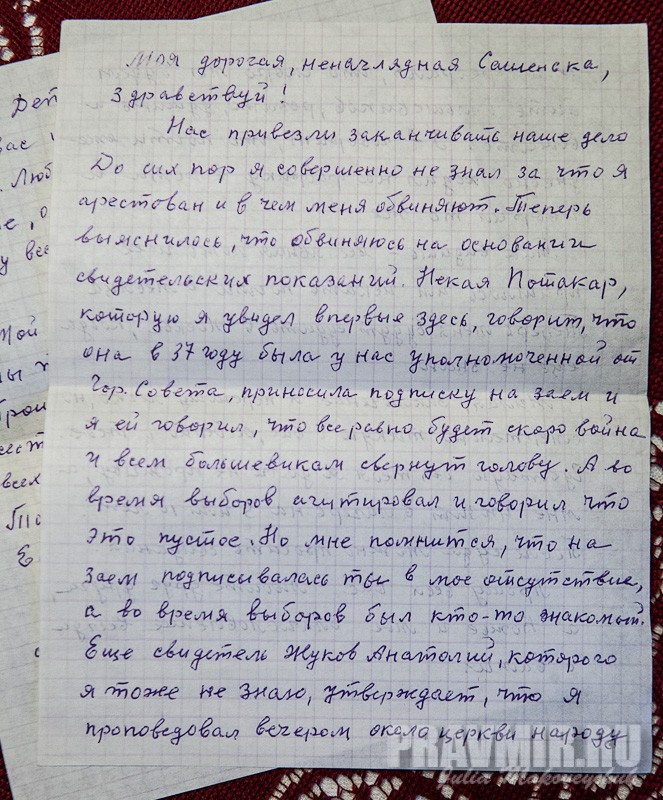 Моя дорогая, ненаглядная Сашенька,
здравствуй!
Нас привезли заканчивать наше дело
До сих пор я совершенно не знал за что я
арестован и в чем меня обвиняют. Теперь
выяснилось, что обвиняюсь на основании
свидетельских показаний. Некая Потакар,
которую я увидел впервые здесь, говорит, что
она в 37 году была у нас уполномоченной от
Гор. Совета, приносила подписку на заем и
я ей говорил, что все равно будет скоро война
и всем большевикам свернут голову. А во
время выборов агитировал и говорил что
это пустое. Но мне помнится, что на
заем подписывалась ты в мое отсутствие,
а во время выборов был кто-то знакомый.
Еще свидетель Жуков Анатолий, которого
я тоже не знаю, утверждает, что я
проповедовал вечером около церкви народу
PRAVMIR.RU